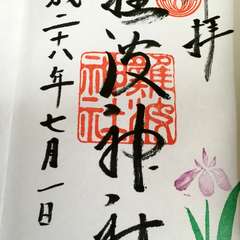 拝
難波神社
難波神社
成二十八年七月一日